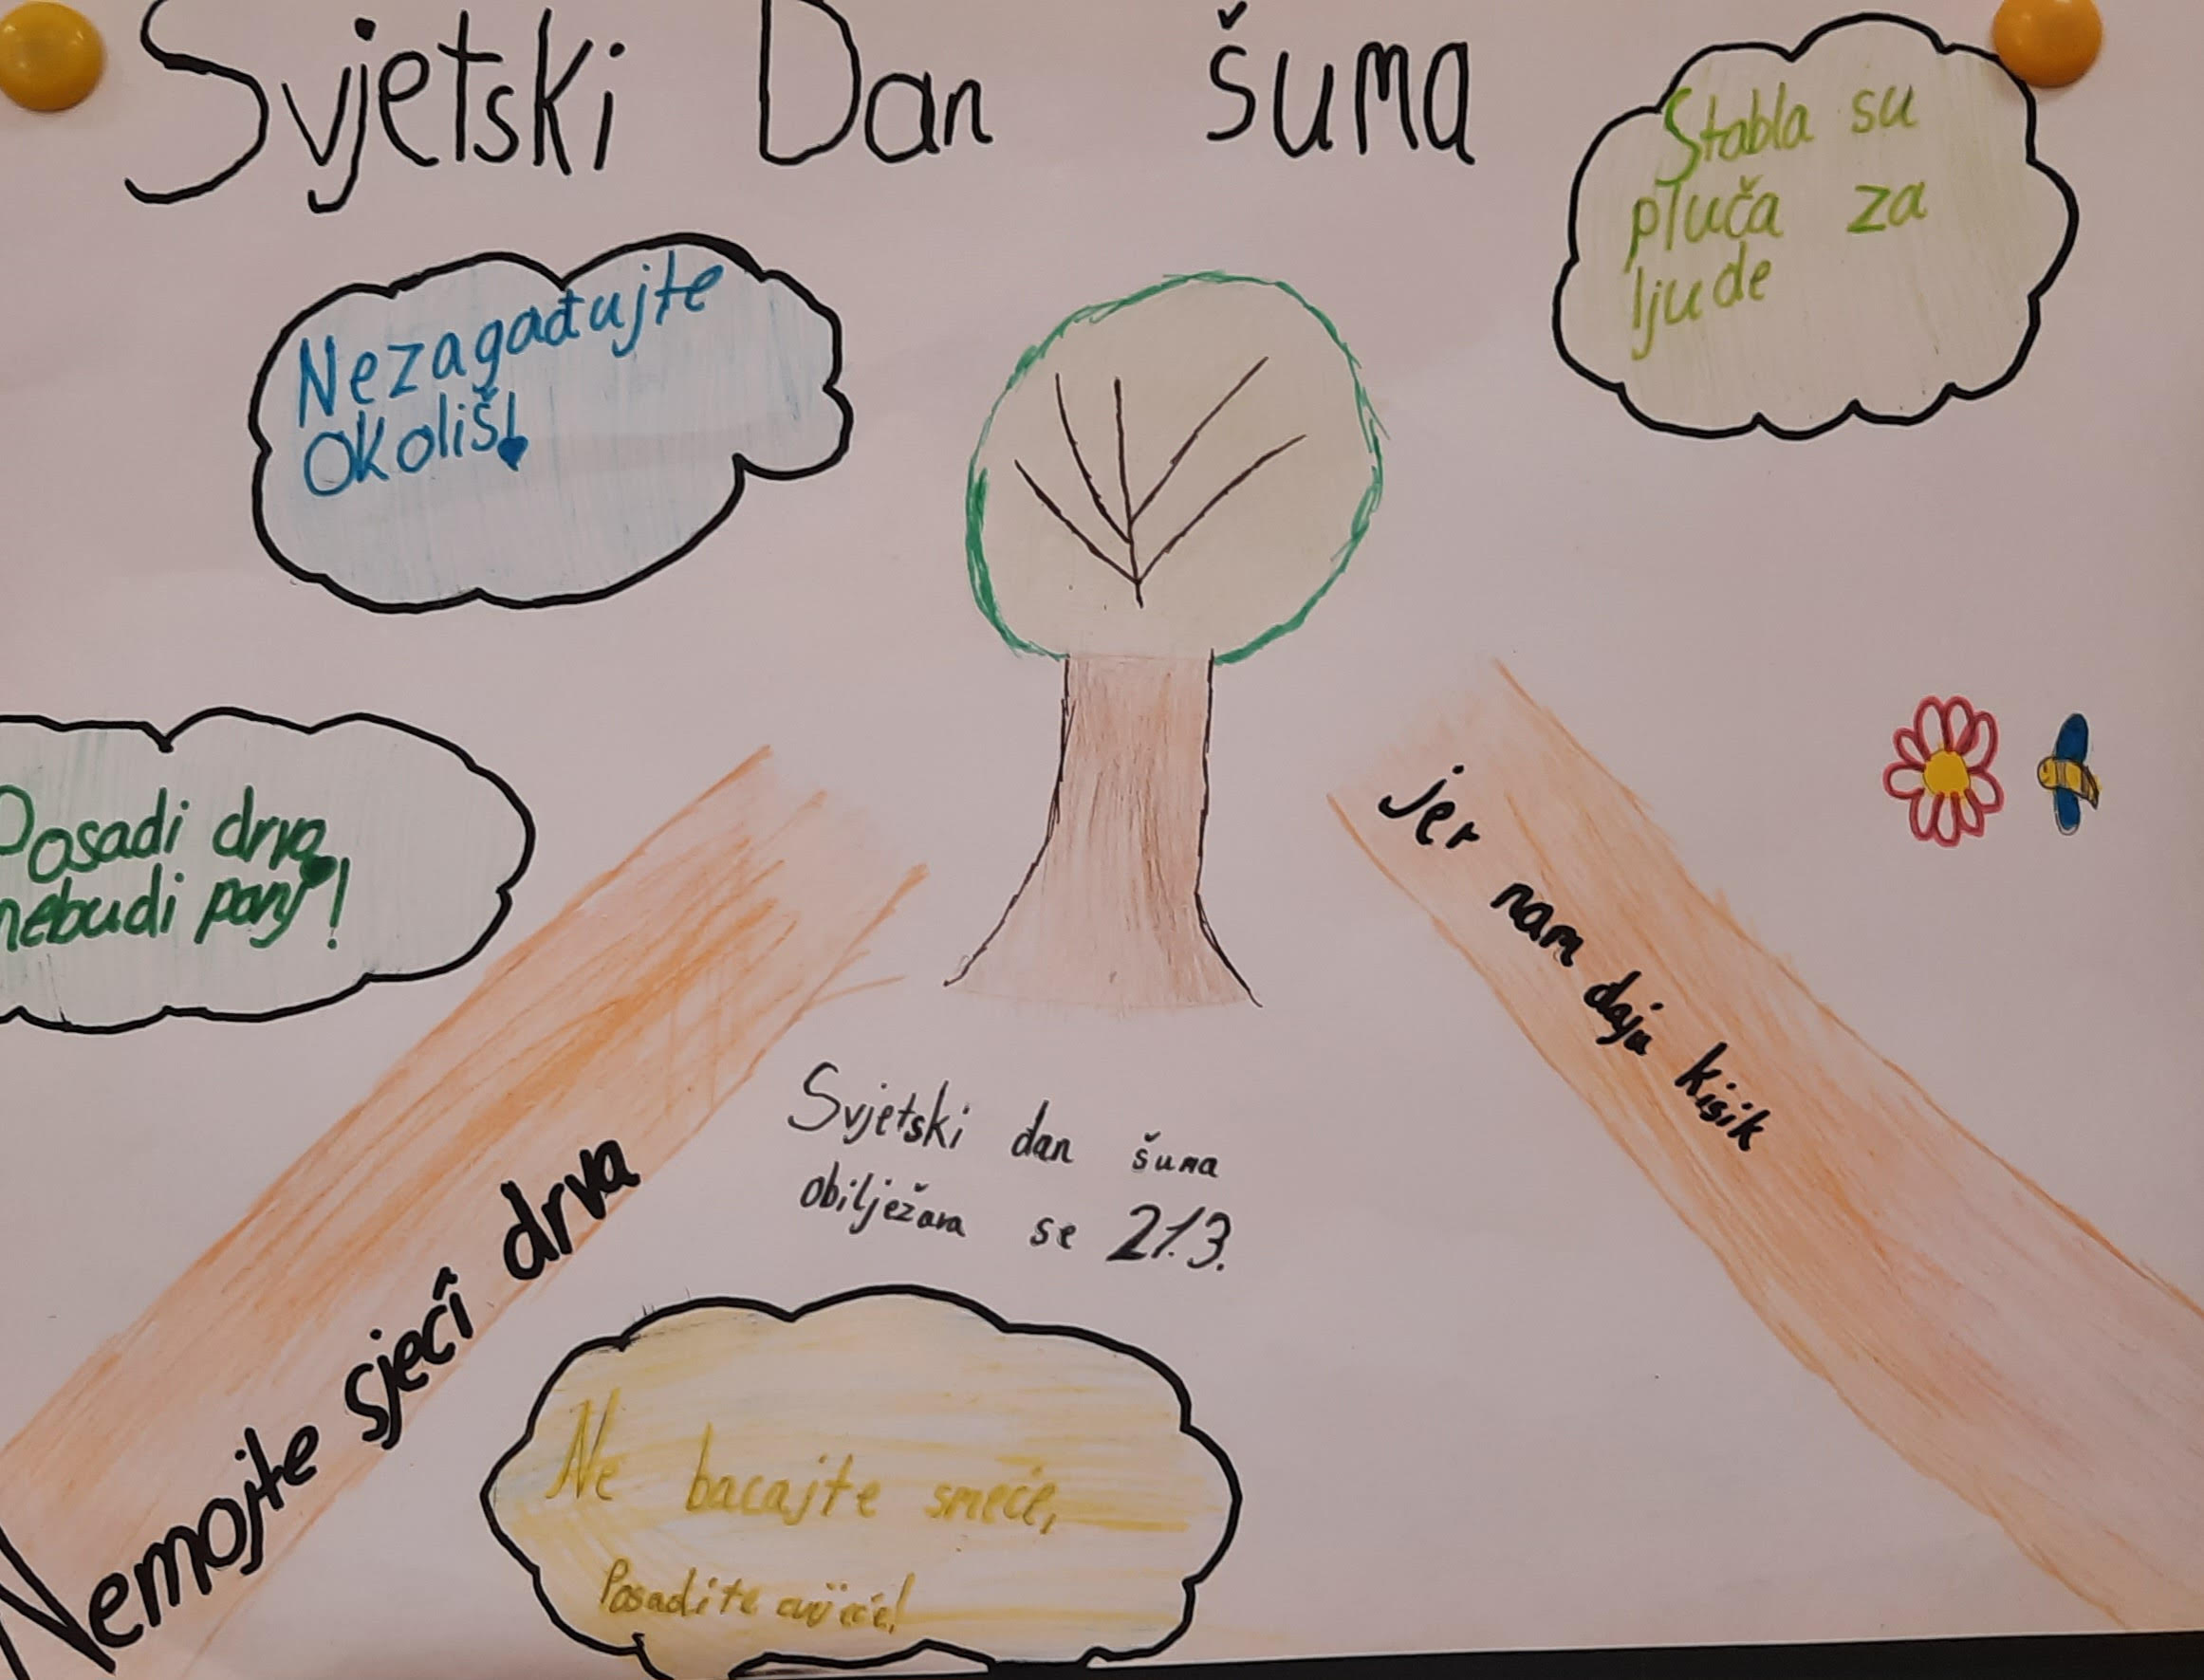 Svjetski Dan šuma
Stabla su
pluča za
ljude
Nezagađujte
okoliš!
Posadi drvo,
nebudi panj!
jer nam daju kisik
Nemojte sjeći drva
Svjetski dan šuma
obilježava se 21.3.
Ne bacajte smeće,
Posadite cvijeće!